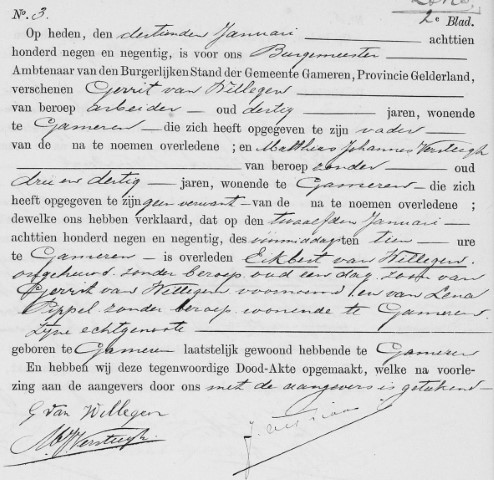 No. 3.
2e Blad.
Op heden, den dertienden Januari achttien
honderd negen en negentig, is voor ons Burgemeester
Ambtenaar van den Burgerlijken Stand der Gemeente Gameren, Provincie Gelderland,
verschenen Gerrit van Willegen
van beroep arbeider oud dertig jaren, wonende
te Gameren die zich heeft opgegeven te zijn vader
van de na te noemen overledene ; en Matthias Johannes Versteegh
van beroep zonder oud
drie en dertig jaren, wonende te Gameren die zich
heeft opgegeven te zijn geen verwant van de na te noemen overledene ;
dewelke ons hebben verklaard, dat op den twaalfden Januari
achttien honderd negen en negentig, des voormiddags ten tien ure
te Gameren is overleden Eckbert van Willegen,
ongehuwd, zonder beroep, oud een dag, zoon van
Gerrit van Willegen voornoemd en van Lena
Pippel zonder beroep wonende te Gameren.
Zijne echtgenoote
geboren te Gameren laatstelijk gewoond hebbende te Gameren
En hebben wij deze tegenwoordige Dood-Akte opgemaakt, welke na voorle-
zing aan de aangevers door ons met de aangevers is geteekend
G van Willegen
MJ Versteegh.